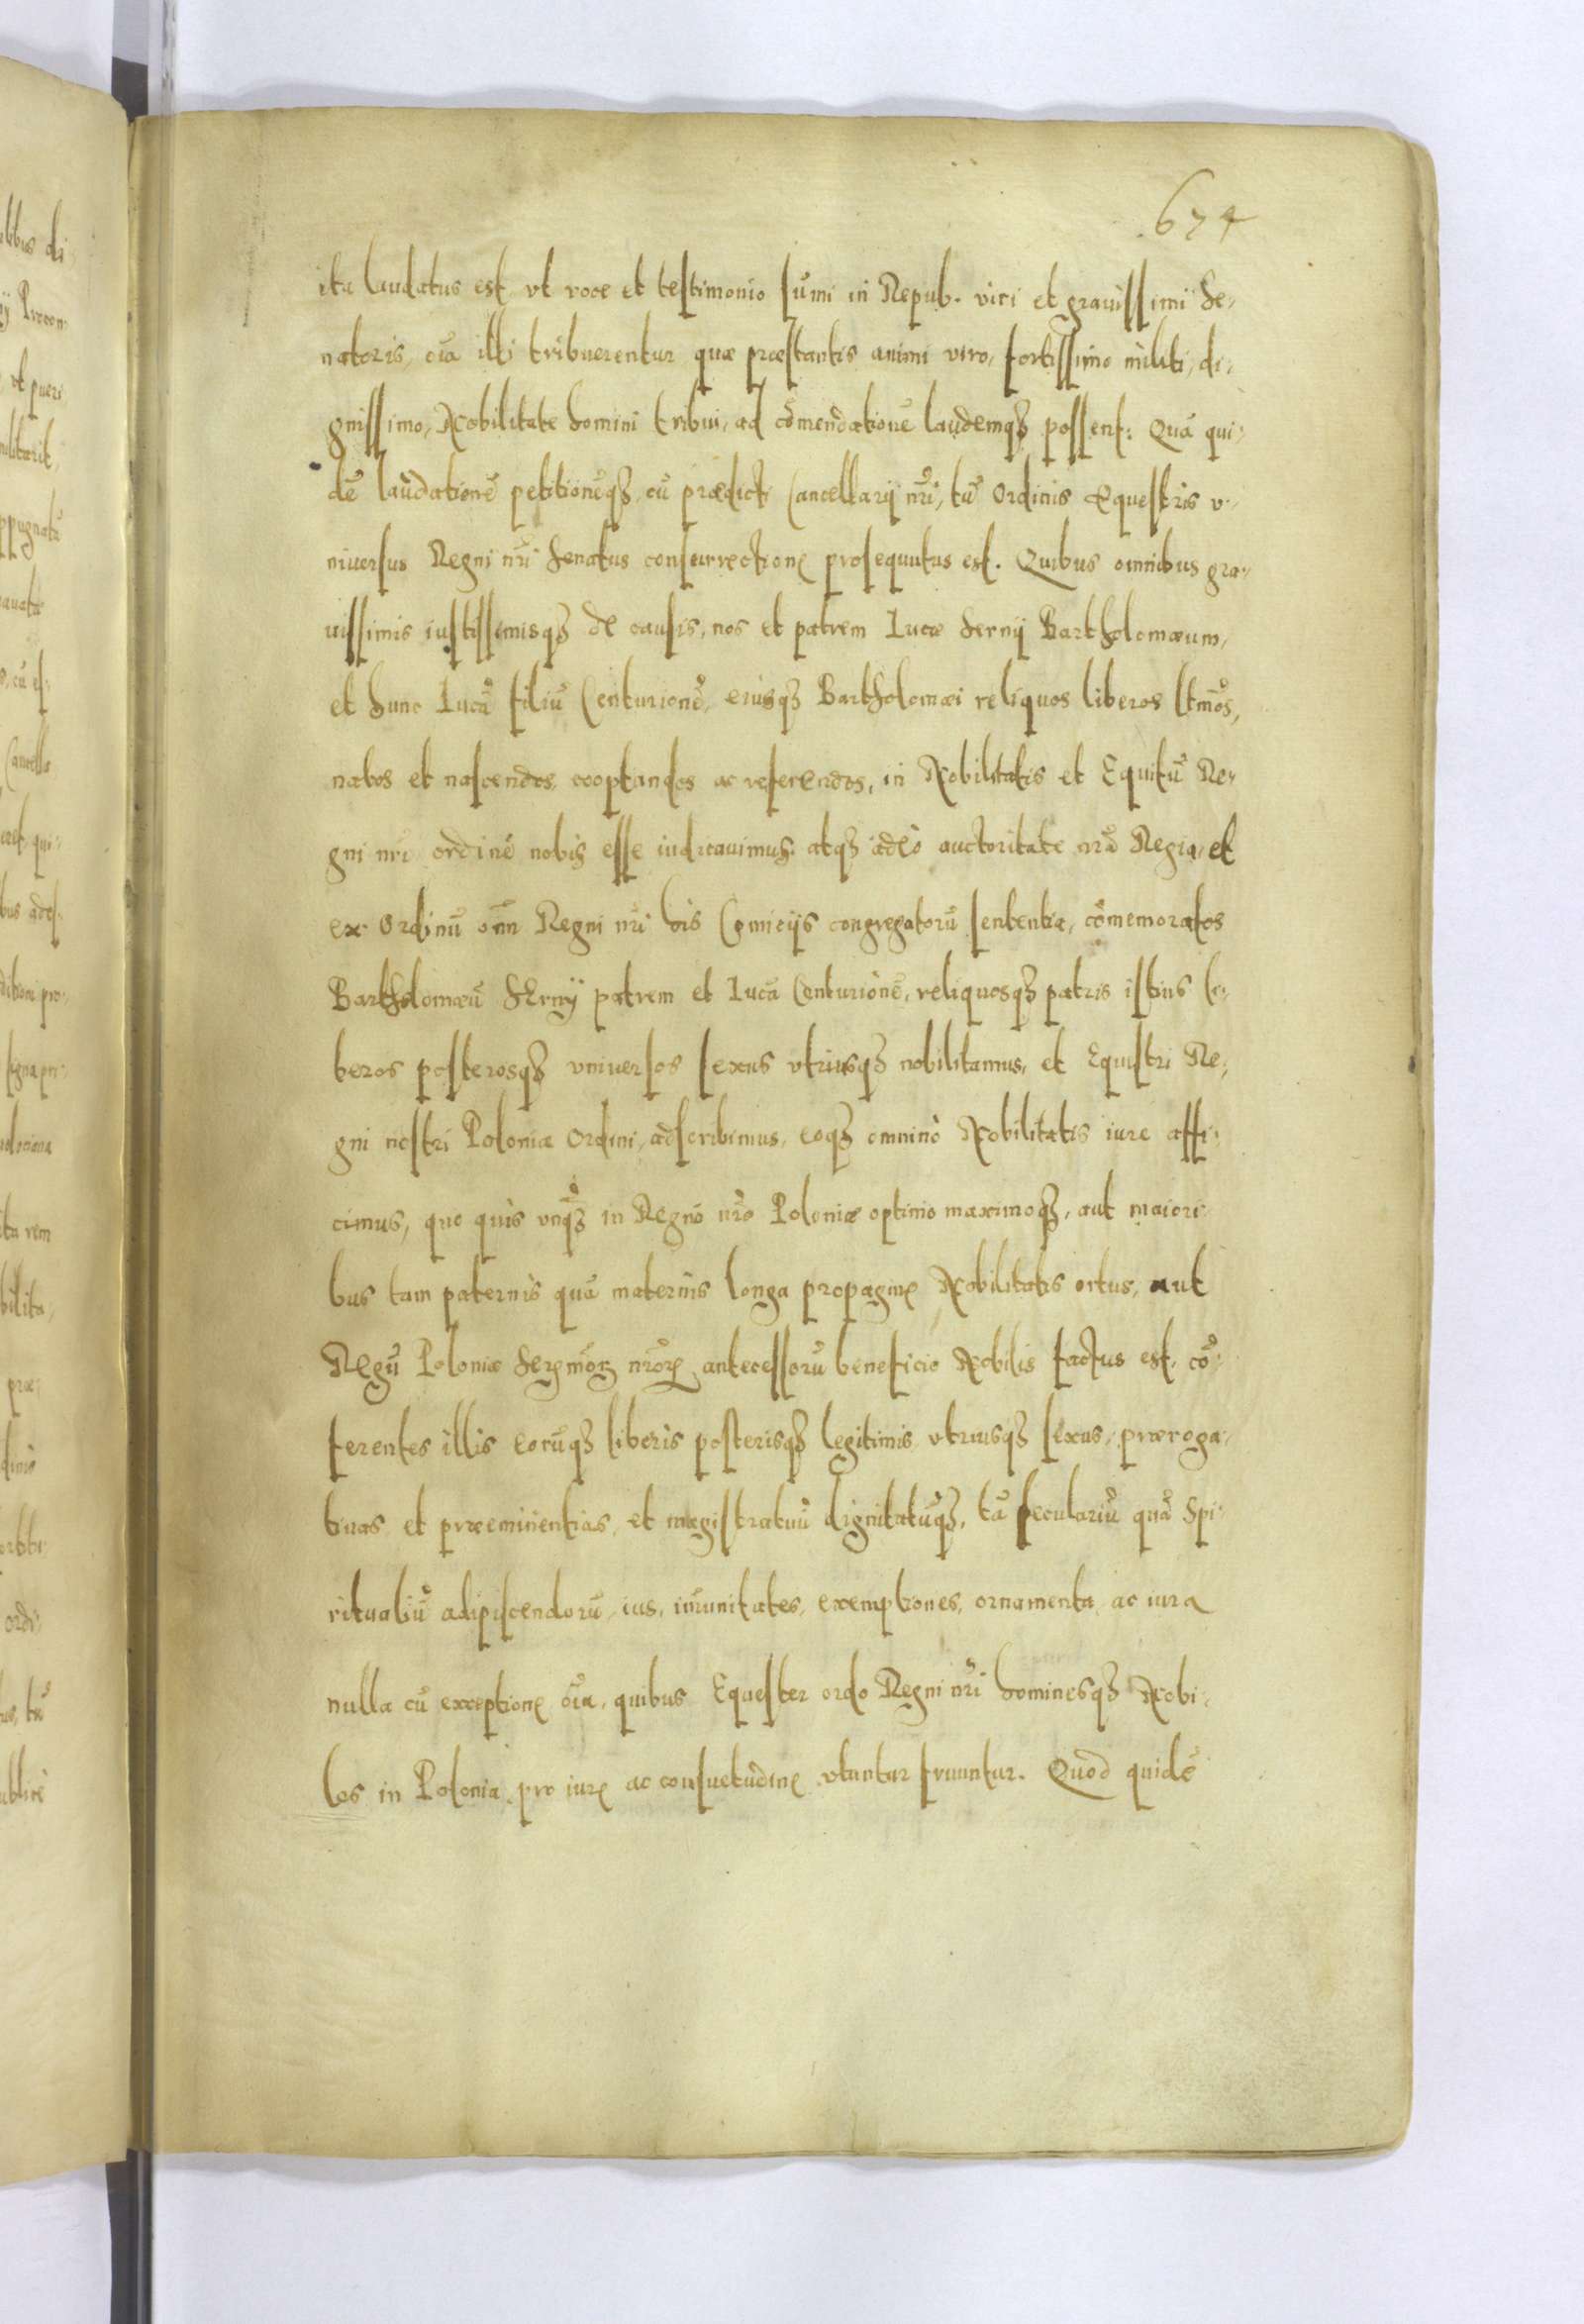 674
ita laudatus est, vt voce et testimonio sum̄i in Repub. viri et grauissimi Se-
natoris, oīa illi tribuerentur quæ præstantis animi viro, fortissimo militi, di-
gnissimo, Nobilitate homini tribui, ad com̄endationē laudemqȝ possent: Quā qui-
dē laudationē petitionēqȝ, cū prædicti Cancellarij nr̄i, tū Ordinis Equestris v-
niuersus Regni nr̄i Senatus consurrectione prosequutus est. Quibus omnibus gra-
uissimis iustissimisqȝ de causis, nos et patrem Lucæ Sernij Bartholomæum,
et hunc Lucā filiū Centurionē, eiusqȝ Bartholomæi reliquos liberos ltm̄os,
natos et nascendos, cooptandos ac referendos, in Nobilitatis et Equitū Re-
gni nr̄i ordinē nobis esse iudicauimus. atqȝ adeò auctoritate nr̄a Regia, et
ex Ordinū om̄n Regni nr̄i his Comicijs congregatorū sententia, com̄emoratos
Bartholomæū Serny patrem et Lucā Centurionē, reliquosqȝ patris istius li-
beros posterosqȝ vniuersos sexus vtriusqȝ nobilitamus, et Equestri Re-
gni nostri Poloniæ Ordini, adscribimus, eoqȝ omninò Nobilitatis iure affi-
cimus, quo quis vnqȝ in Regno nr̄o Poloniæ optimo maximoqȝ, aut maiori-
bus tam paternis quā maternis longa propagine Nobilitatis ortus, aut
Regū Poloniæ Serenmorȝ nr̄orȝ antecessorū beneficio Nobilis factus est, cō-
ferentes illis eorūqȝ liberis posterisqȝ legitimis vtriusqȝ sexus, præroga-
tiuas et præeminentias, et magistratuū dignitatūqȝ, tā seculariū quā Spi-
ritualiū adipiscendorū, ius, im̄unitates, exemptiones, ornamenta, ac iura
nulla cū exceptione oīa, quibus Equester ordo Regni nr̄i hominesqȝ Nobi-
les in Polonia, pro iure ac consuetudine vtuntur fruuntur. Quod quidē